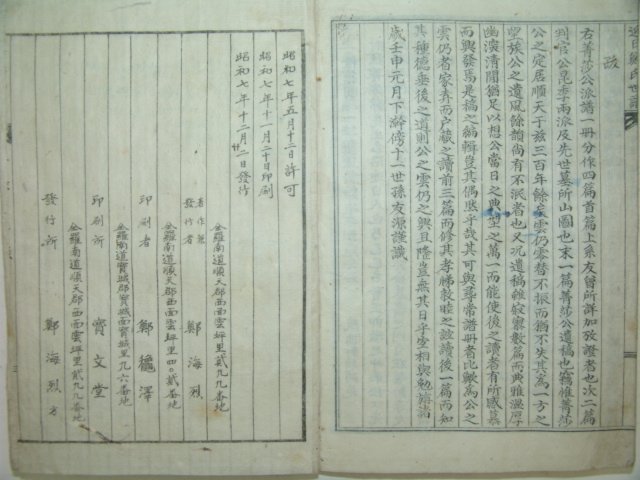 跋
右菁莎公派譜一冊分作四篇首篇上系友曾所詳加攷證者也次二篇
判官公昆季兩派及先世墓所山圖也末一篇菁莎公遺稿也竊惟菁莎
公之定居順天于玆三百年餘矣雲仍零替不振而猶不失其為一方之
望族公之遺風餘韻尚有不泯者也又况遺稿雖寂寥數篇而典雅溫厚
幽演清閒猶足以想公當日之典型之萬一而能使後之讀者有所感慕
而興發焉是稿之編輯豈其偶哉乎哉其可與尋常譜冊者比歟為公之
雲仍者家弆而戶藏之讀前三篇而修其孝睇敦睦之誼讀後一篇而知
其種德垂後之道則公之雲仍之興且隆豈無其日乎空相與勉旃
歲壬申元月下澣傍十一世孫友源謹識
昭和七年五月十二日許可
昭和七年十一月二十日印刷
昭和七年十二月二日發行
全羅南道順天郡西面雲坪里貳九九番地
著作兼
發行者 鄭海烈
全羅南道順天郡西面雲坪里四〇貳番地
印刷者 鄭 澤
全羅南道寶城郡寶城面寶城里九六番地
印刷所 寶文堂
全羅南道順天郡西面雲坪里貳九九番地
發行所 鄭海烈方